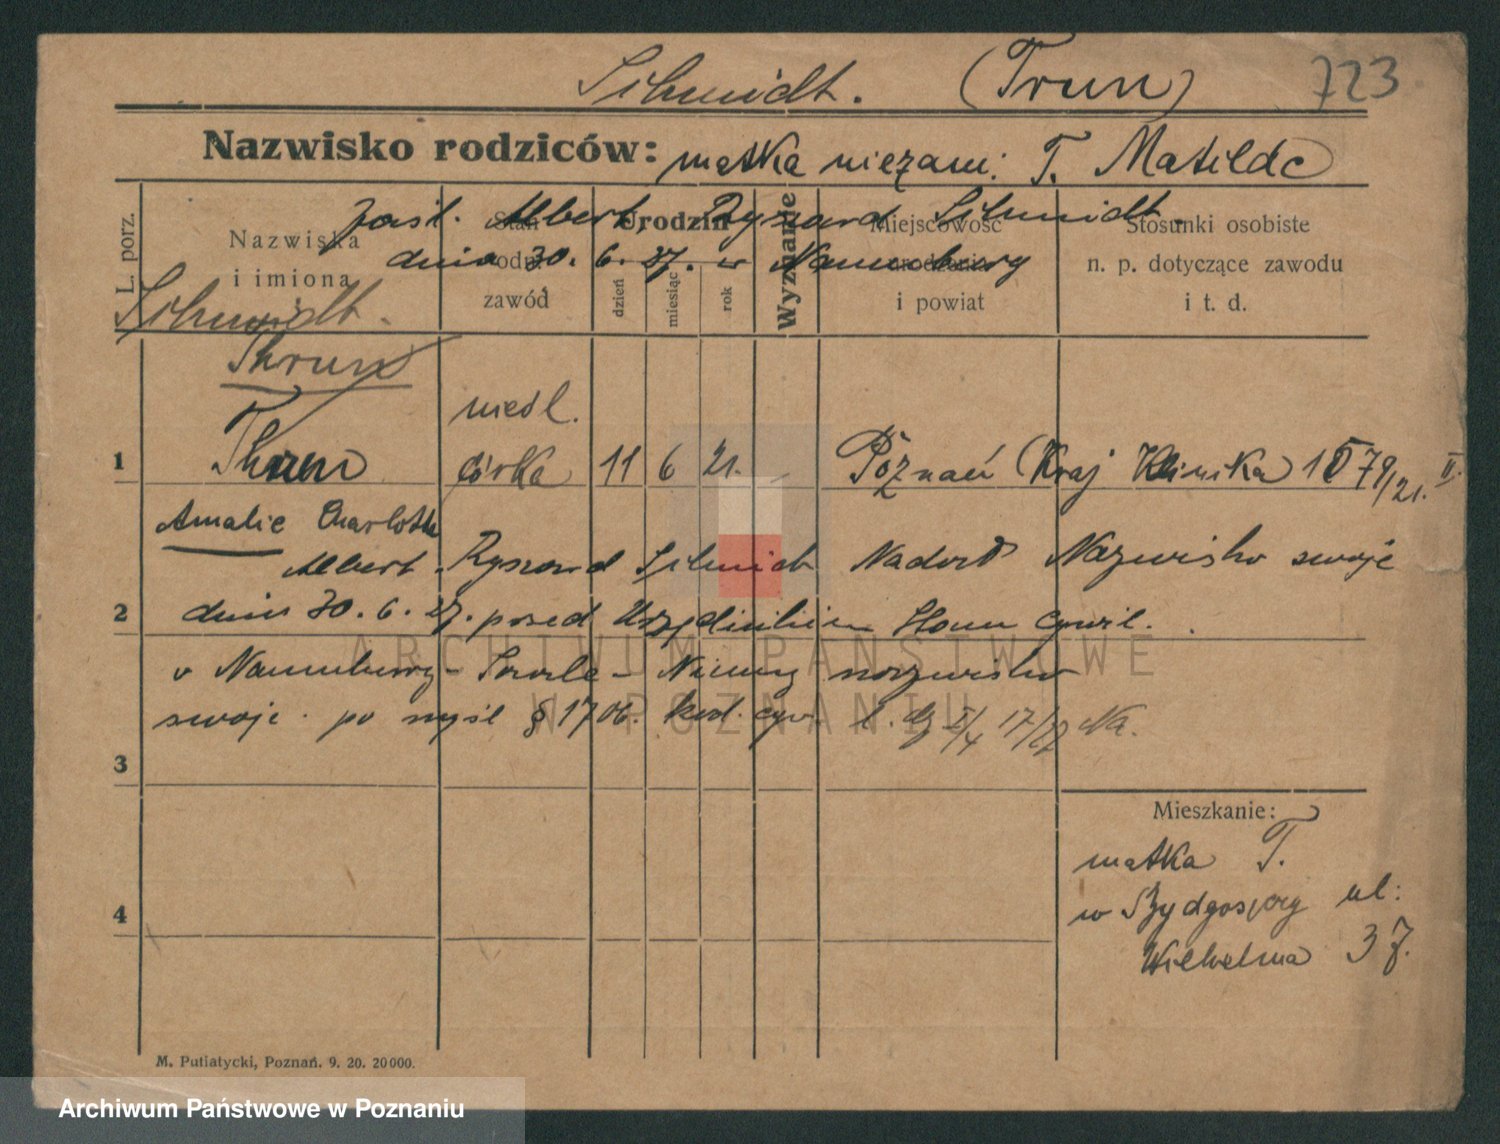 Schmidt. (Trun) 723
Nazwisko rodziców: matka niezam: T. Matilde
zaśl. Albert, Ryszard Schmidt.
dnia 30. 6. 27. w Naumburg
L. porz.
Nazwiska i imiona
Stan rodz. zawód
Urodzin
dzień
miesiąc
rok
Wyznanie
Miejscowość urodzenia i powiat
Stosunki osobiste n. p. dotyczące zawodu i t. d.
Schmidt.
Thrun
niesl.
1 Thrun córka 11 6 21. – Poznań (Kraj Klinika 1079/21. II.
Amalie Charlotte
Albert Ryszard Schmidt Nadał Nazwisko swoje
2 dnia 30. 6. 27. przed Urzędnikiem Stanu Cywil.
v Naumburg - Saale - Niemcy nazwisko
swoje po myśl § 1706. kod. cyw. 17/27 Na.
3
Mieszkanie:
matka T.
4 w Bydgoszczy ul:
Wilhelma 37.
M. Putiatycki, Poznań. 9. 20. 20000.
ARCHIWUM PAŃSTWOWE
W POZNANIU
Archiwum Państwowe w Poznaniu